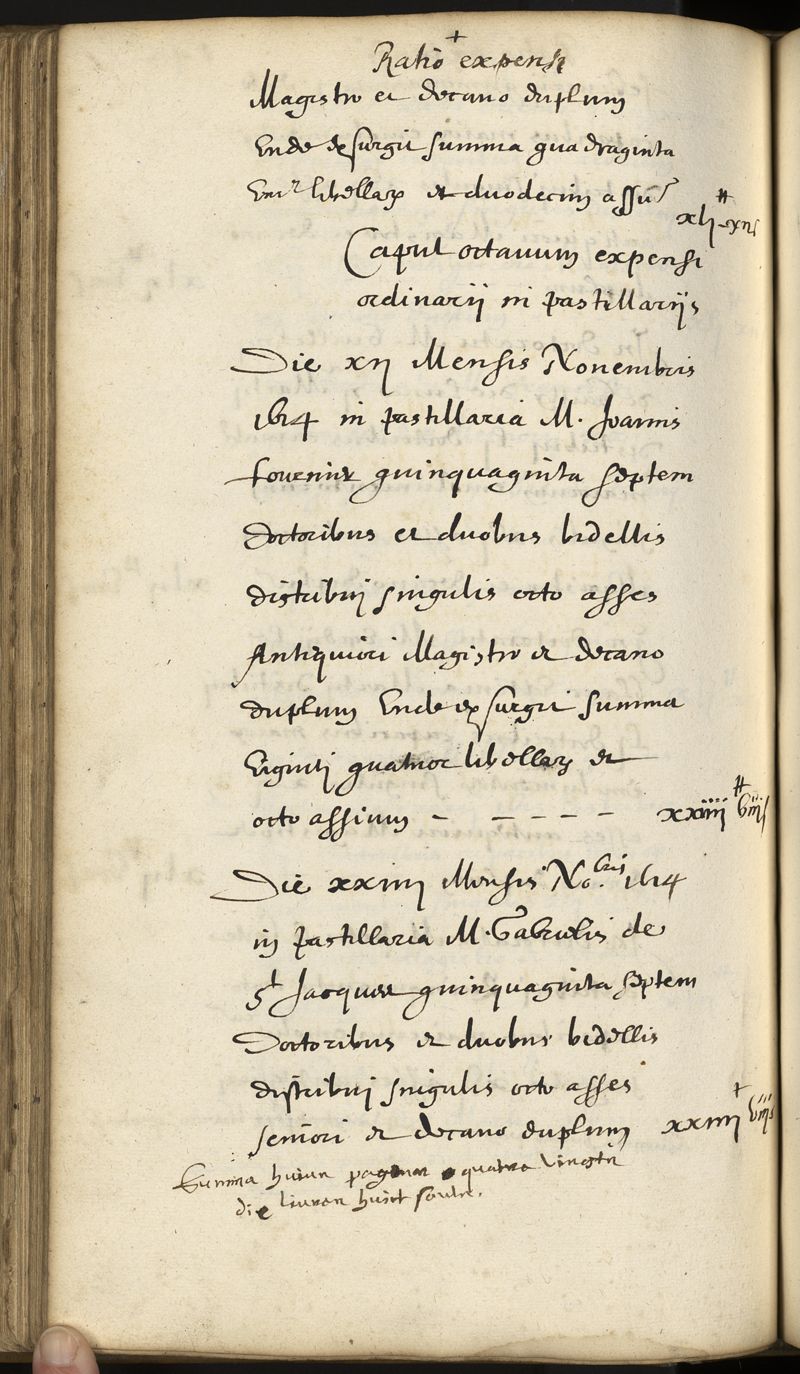 Ratio expensi
Magistro et decano duplum
Unde exsurgit summa quadraginta
libellar et duodecim assiu
Caput octauum expensi
ordinarij in pastillarijs
Die xij Mensis Nouembris
1614 in pastillaria M. Joannis
fournier quinquaginta septem
doctoribus et duobus bidellis
distribuj singulis octo asses
Antiquiori Magistro et decano
duplum Unde exsurgit summa
Viginti quatuor libellar et
octo assium - - - - - xxiiij ₶ viijs
Die xxiiij Mensis No.bris 1614
in pastillaria M. Gabrielis de
St Jacques quinquaginta septem
Doctoribus et duobus bidellis
distribuj singulis octo asses
seniori et decano duplum xxiiij viijs
Summa huius paginae quatre vingtz
dix liures huict soulz.